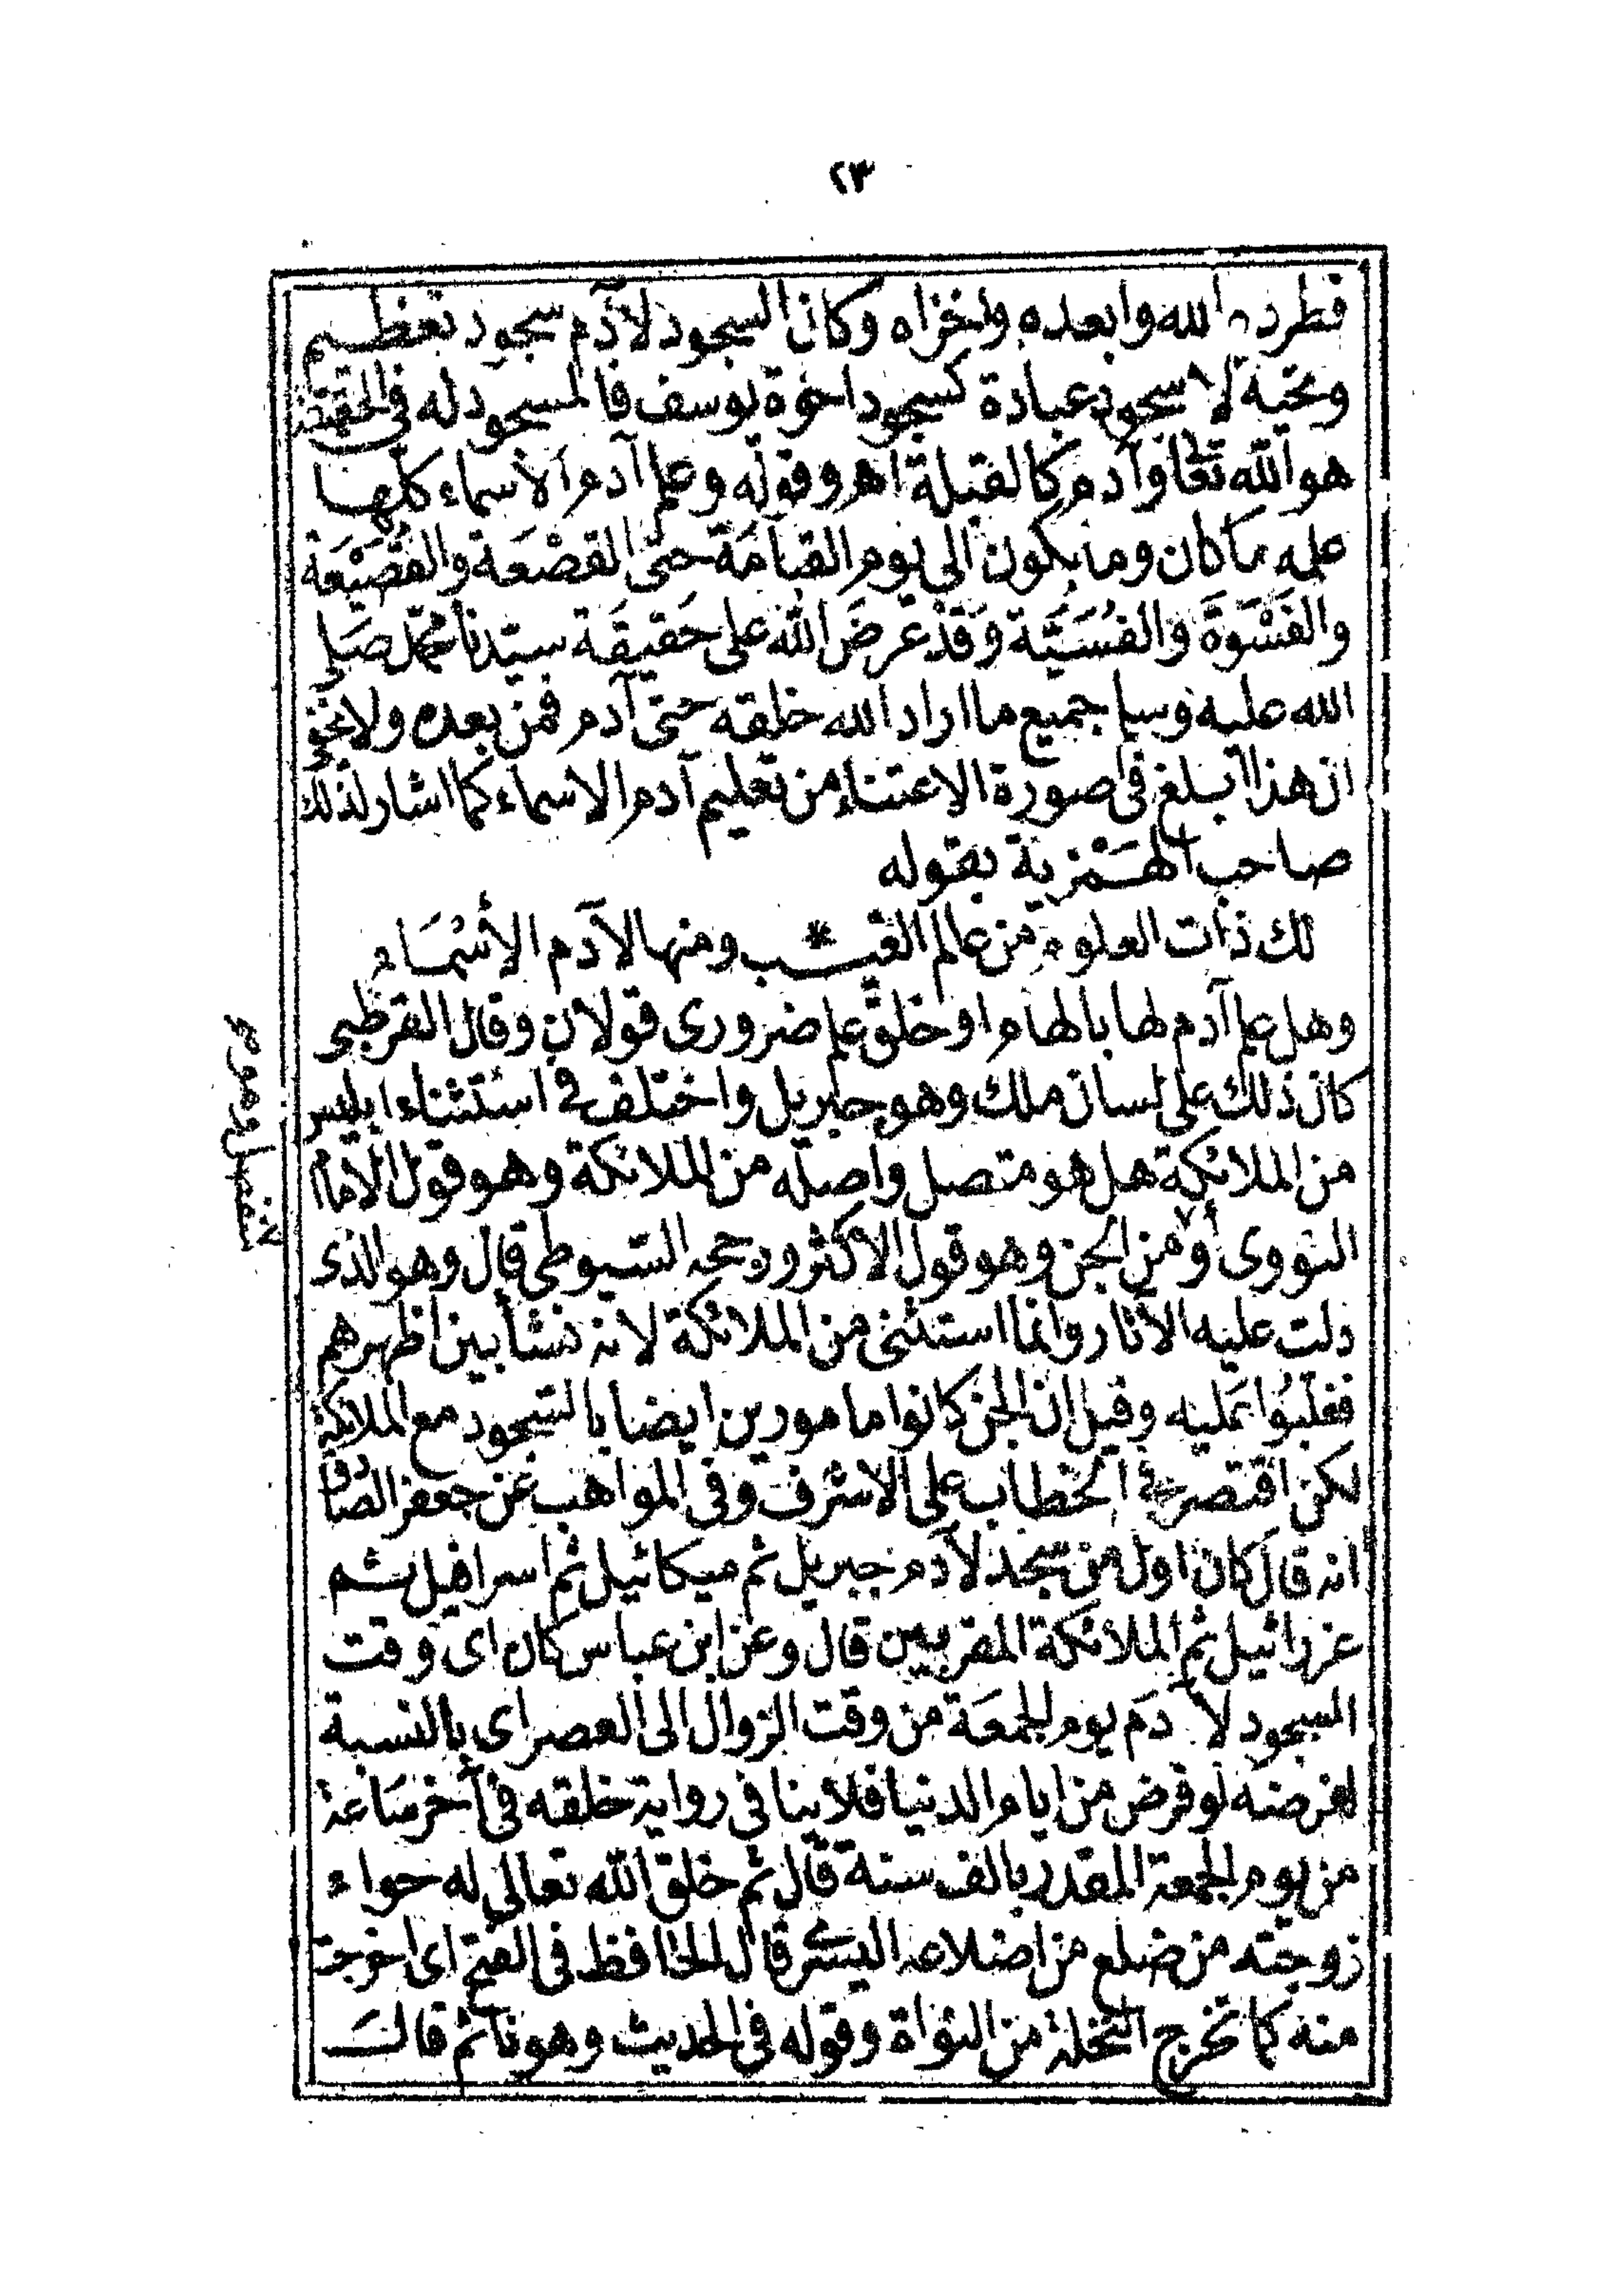 ٢٣
فطرده الله وابعده واخزاه وكان السجود لآدم سجود تعظيم
وتحية لا سجود عبادة كسجود اخوة يوسف فالمسجود له فى الحقيقة
هو الله تعالى وآدم كالقبلة اهـ وقوله وعلم آدم الاسماء كلها
علمه ما كان وما يكون الى يوم القيامة حتى القصْعَة والقُصَيْعَة
والفَسْوَة والفُسَيَّة وَقَدْ عَرضَ الله على حَقيقَة سيّدنا محمّد صَلى
الله عليه وسلم جميع ما اراد الله خلقه حتى آدم فمن بعده ولا يخفى
ان هذا ابلغ فى صورة الاعتناء من تعليم آدم الاسماء كما اشار لذلك
صاحب الهَمْزية بقوله
لك ذات العلوم من عالم الغيب * ومنها لآدم الأسْمَاء
وهل علم آدم لها بالهام او خلق علم ضرورى قولان وقال القرطبى
كان ذلك على لسان ملك وهو جبريل واختلف فى استثناء ابليس
من الملائكة هل هو متصل واصله من الملائكة وهو قول الامام
النووى أو من الجن وهو قول الاكثر ورجحه السيوطى قال وهو الذى
دلت عليه الآثار وانما استثنى من الملائكة لانه نشأ بين اظهرهم
فغلبُوا عَليه وقيل ان الجن كانوا مامورين ايضا بالسجود مع الملائكة
لكن اقتصر فى الخطاب على الاشرف وفى المواهب عن جعفر الصادق
انه قال كان اول من سجد لآدم جبريل ثم ميكائيل ثم اسرافيل ثم
عزرائيل ثم الملائكة المقربين قال وعن ابن عباس كان اى وقت
السجود لآدَم يوم الجمعَة من وقت الزوال الى العصر اى بالنسبة
لفرضه لو فرض من ايام الدنيا فلا ينافى رواية خلقه فى آخر سَاعة
من يوم الجمعة المقدر بالف سنة قال ثم خلق الله تعالى له حواء
زوجته من ضلع من اضلاعه اليسرى قال الحافظ فى الفتح اى اخرجت
منه كما تخرج النخلة من النواة وقوله فى الحديث وهو نائم قالت